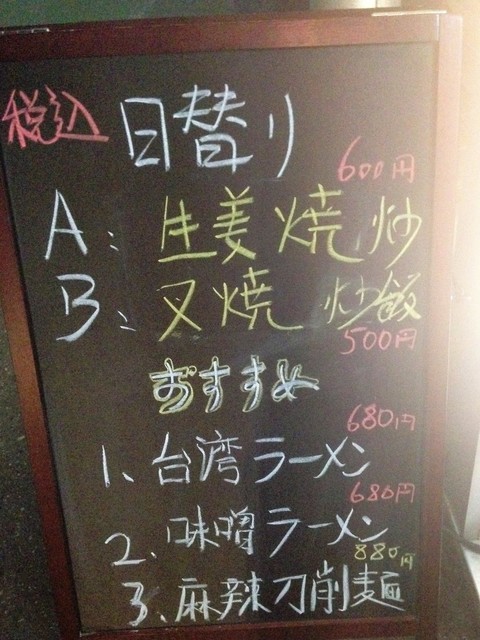 税込 日替り
600円
A: 生姜焼炒
B: 叉焼 炒飯
500円
おすすめ
680円
1、台湾ラーメン
680円
2、味噌ラーメン
880円
3、麻辣刀削麺